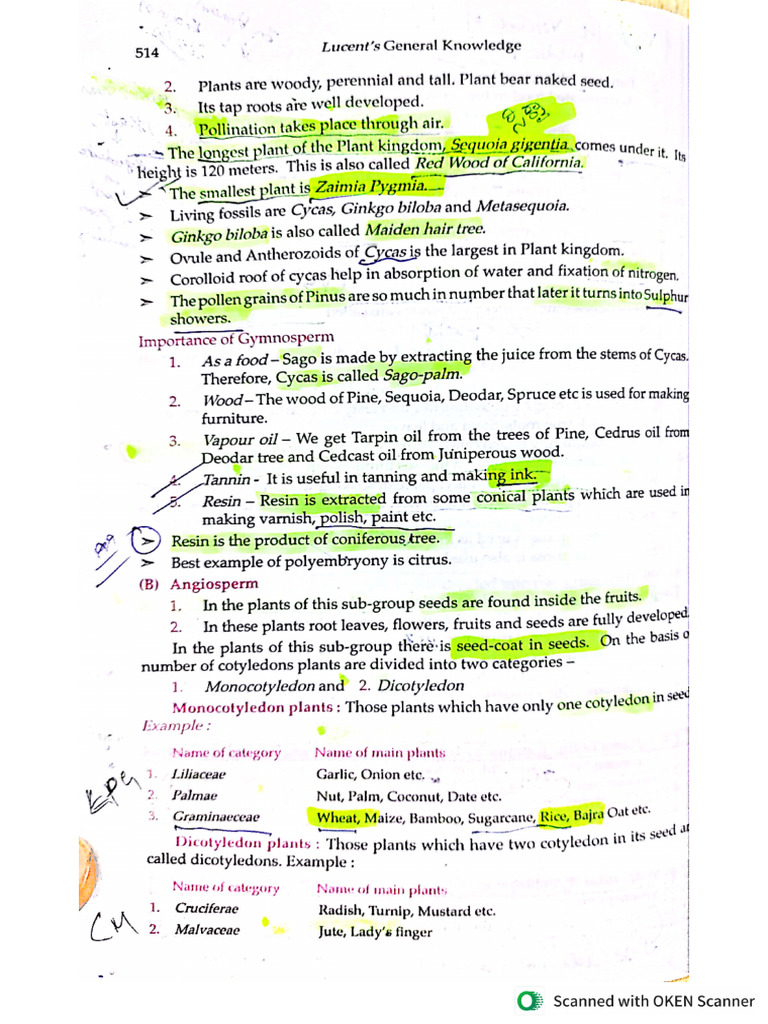 514
Lucent's General Knowledge
2. Plants are woody, perennial and tall. Plant bear naked seed.
3. Its tap roots are well developed.
4. Pollination takes place through air.
The longest plant of the Plant kingdom, Sequoia gigentia comes under it. Its
height is 120 meters. This is also called Red Wood of California.
➤ The smallest plant is Zaimia Pygmia.
➤ Living fossils are Cycas, Ginkgo biloba and Metasequoia.
➤ Ginkgo biloba is also called Maiden hair tree.
➤ Ovule and Antherozoids of Cycas is the largest in Plant kingdom.
➤ Corolloid roof of cycas help in absorption of water and fixation of nitrogen.
➤ The pollen grains of Pinus are so much in number that later it turns into Sulphur
showers.
Importance of Gymnosperm
1. As a food – Sago is made by extracting the juice from the stems of Cycas.
Therefore, Cycas is called Sago-palm.
2. Wood – The wood of Pine, Sequoia, Deodar, Spruce etc is used for making
furniture.
3. Vapour oil – We get Tarpin oil from the trees of Pine, Cedrus oil from
Deodar tree and Cedcast oil from Juniperous wood.
4. Tannin - It is useful in tanning and making ink.
5. Resin – Resin is extracted from some conical plants which are used in
making varnish, polish, paint etc.
➤ Resin is the product of coniferous tree.
➤ Best example of polyembryony is citrus.
(B) Angiosperm
1. In the plants of this sub-group seeds are found inside the fruits.
2. In these plants root leaves, flowers, fruits and seeds are fully developed.
In the plants of this sub-group there is seed-coat in seeds. On the basis o
number of cotyledons plants are divided into two categories –
1. Monocotyledon and 2. Dicotyledon
Monocotyledon plants : Those plants which have only one cotyledon in seed
Example :
Name of category Name of main plants
1. Liliaceae Garlic, Onion etc.
2. Palmae Nut, Palm, Coconut, Date etc.
3. Graminaeceae Wheat, Maize, Bamboo, Sugarcane, Rice, Bajra Oat etc.
Dicotyledon plants : Those plants which have two cotyledon in its seed ar
called dicotyledons. Example :
Name of category Name of main plants
1. Cruciferae Radish, Turnip, Mustard etc.
CM
2. Malvaceae Jute, Lady's finger
Scanned with OKEN Scanner